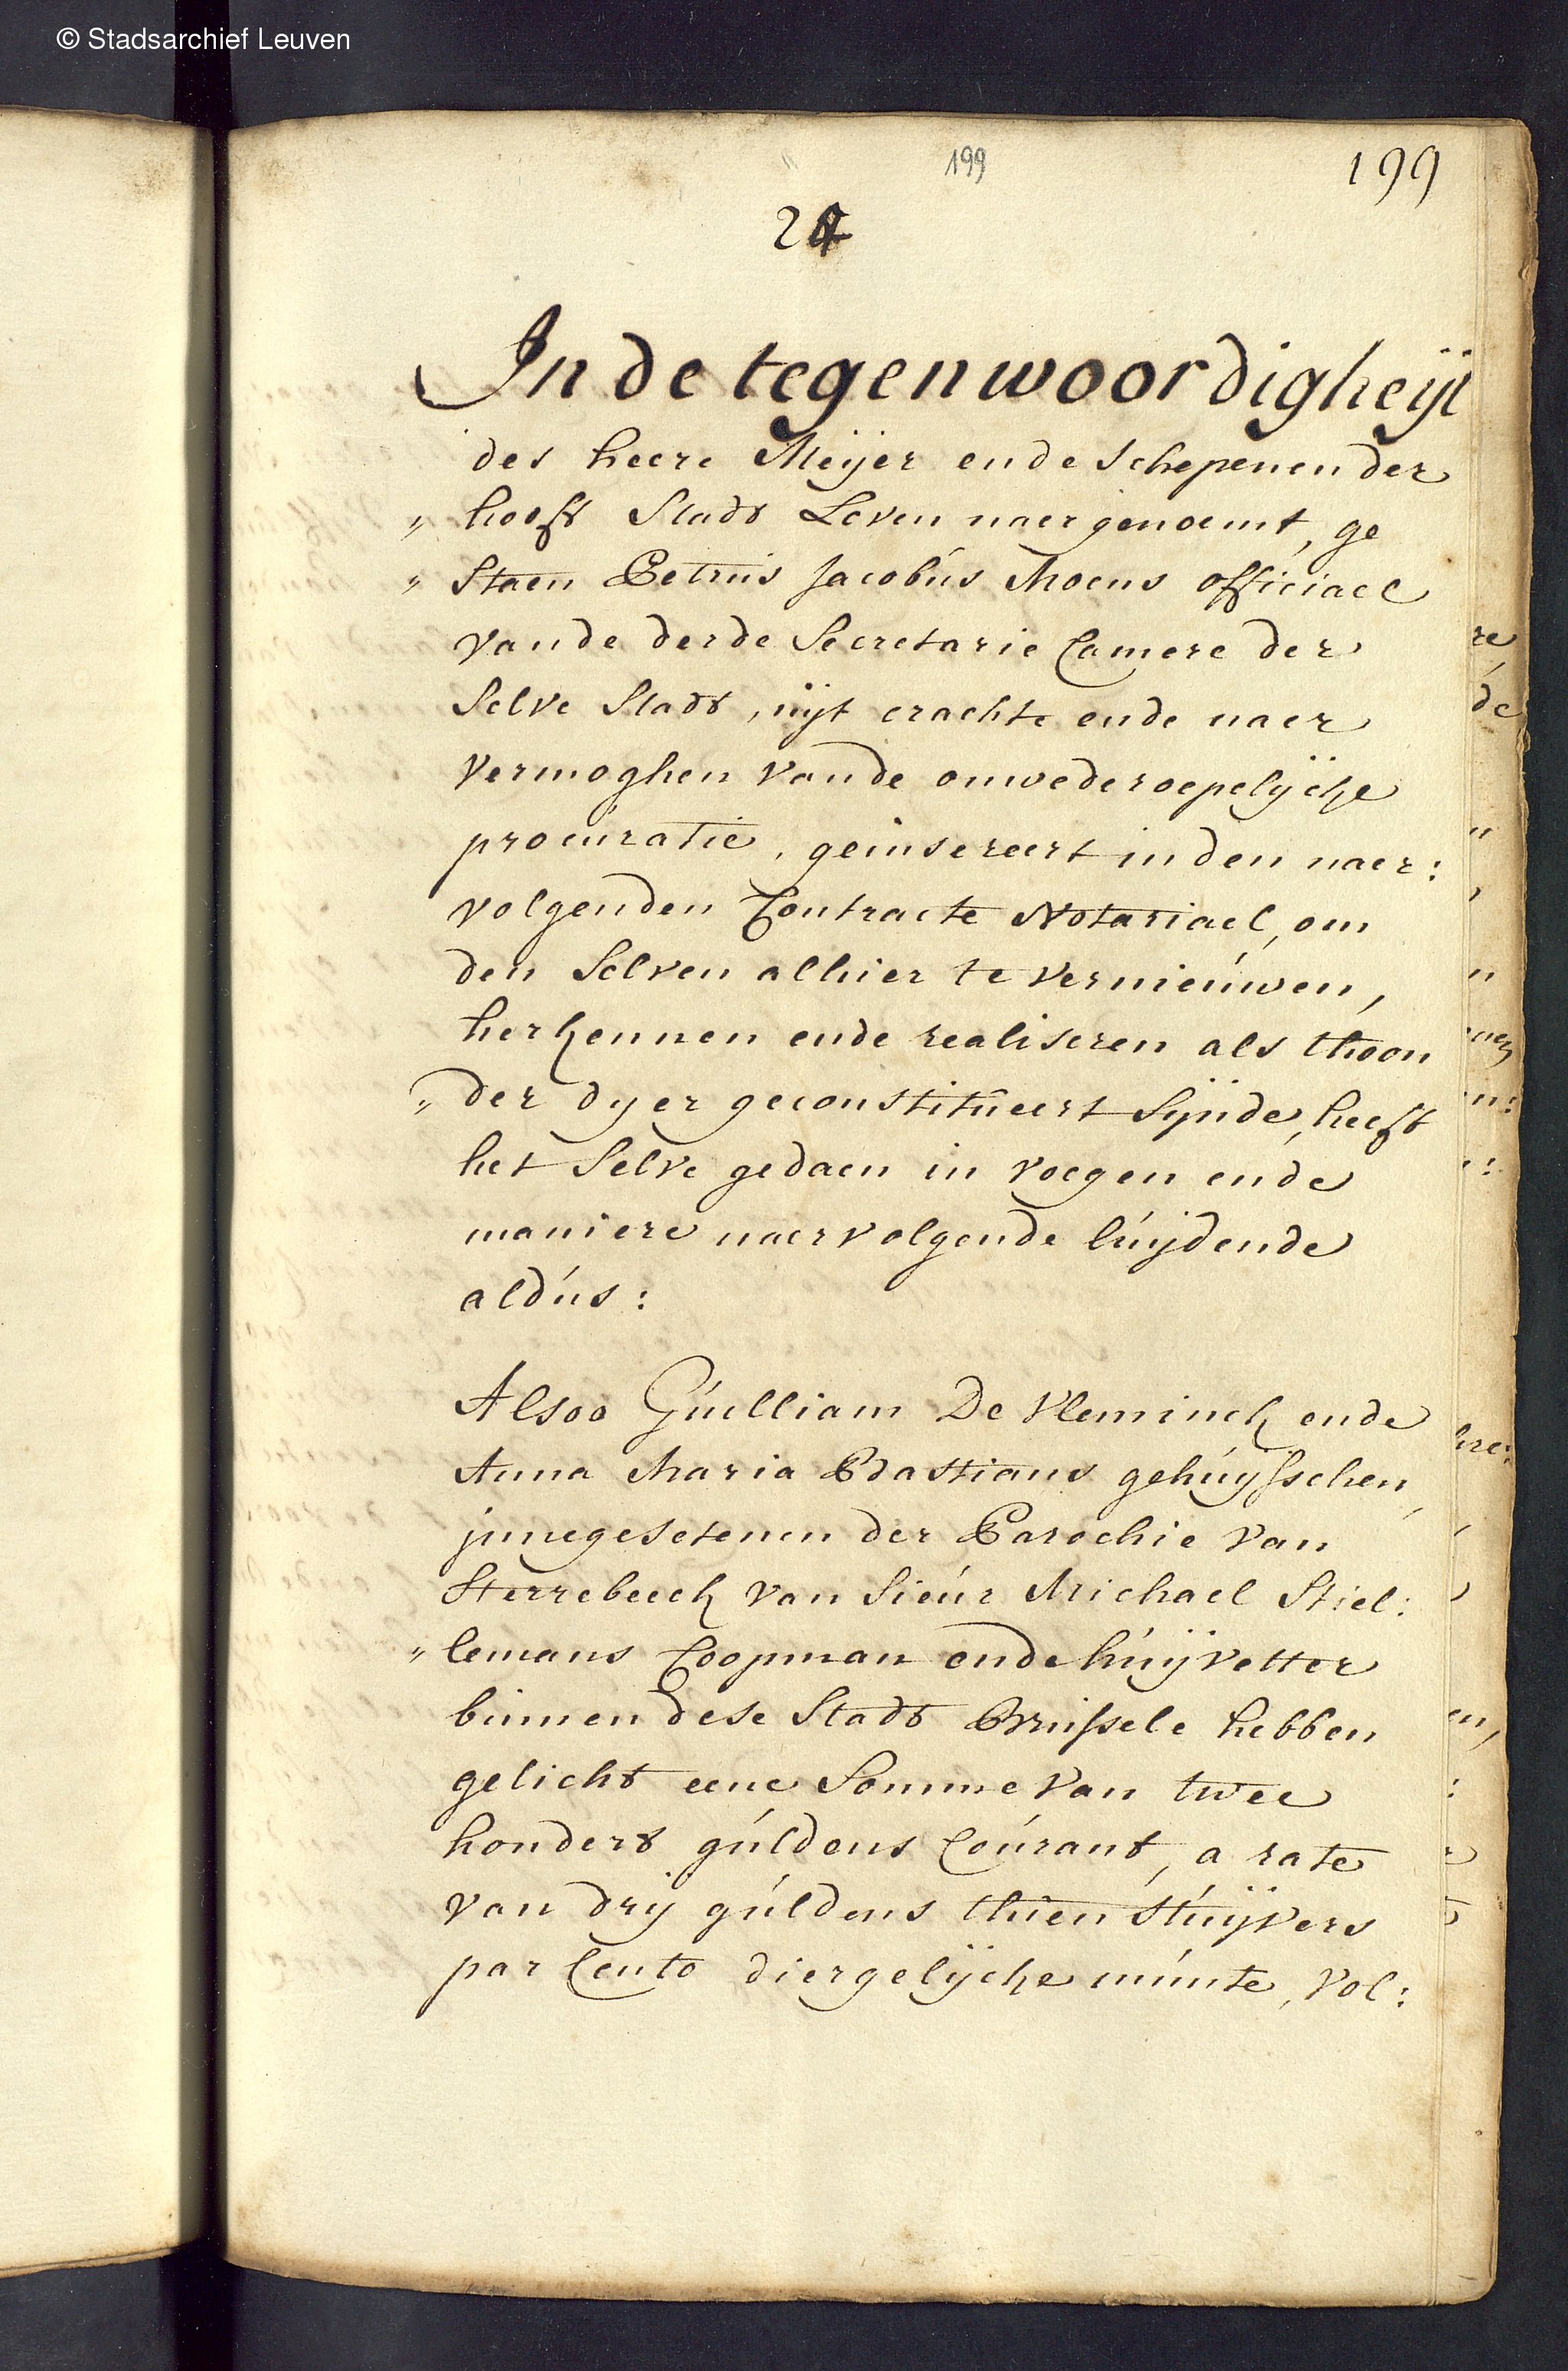 © Stadsarchief Leuven
199
199
In de tegenwoordigheijt
des heere Meijer ende schepenen der
„ hooft Stadt Loven naergenoemt, ge
„ Staen Petrus Jacobús Moens officiael
vande derde Secretarie Camere der
Selve Stadt, uijt crachte ende naer
vermoghen vande onwederoepelijcke
procúratie, geinsereert in den naer:
volgenden Contracte Notariael, om
den Selven alhier te vernieúwen,
herkennen ende realiseren als thoon
„ der dyer geconstitúeert Sijnde, heeft
het Selve gedaen in voegen ende
maniere naervolgende lúijdende
aldús:
Alsoo Gúilliam De Vleminck ende
Anna Maria Bastians gehúijsschen,
innegesetenen der Parochie van
Sterrebeeck van Sieúr Michael Stiel:
„ lemans Coopman ende húijvetter
binnen dese Stadt Brússele hebben
gelicht eene Somme van twee
hondert gúldens Coúrant, a rate
van drij gúldens thien stúijvers
par Cento diergelijcke múnte, vol: